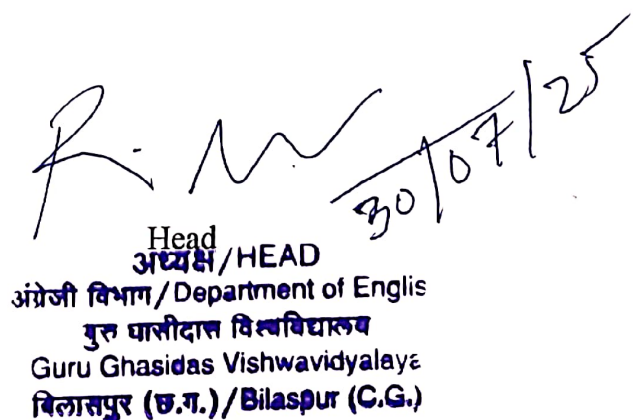 R.
30/07/25
Head
अध्यक्ष/HEAD
अंग्रेजी विभाग/Department of Englis
गुरु घासीदास विश्वविद्यालय
Guru Ghasidas Vishwavidyalaya
बिलासपुर (छ.ग.)/Bilaspur (C.G.)